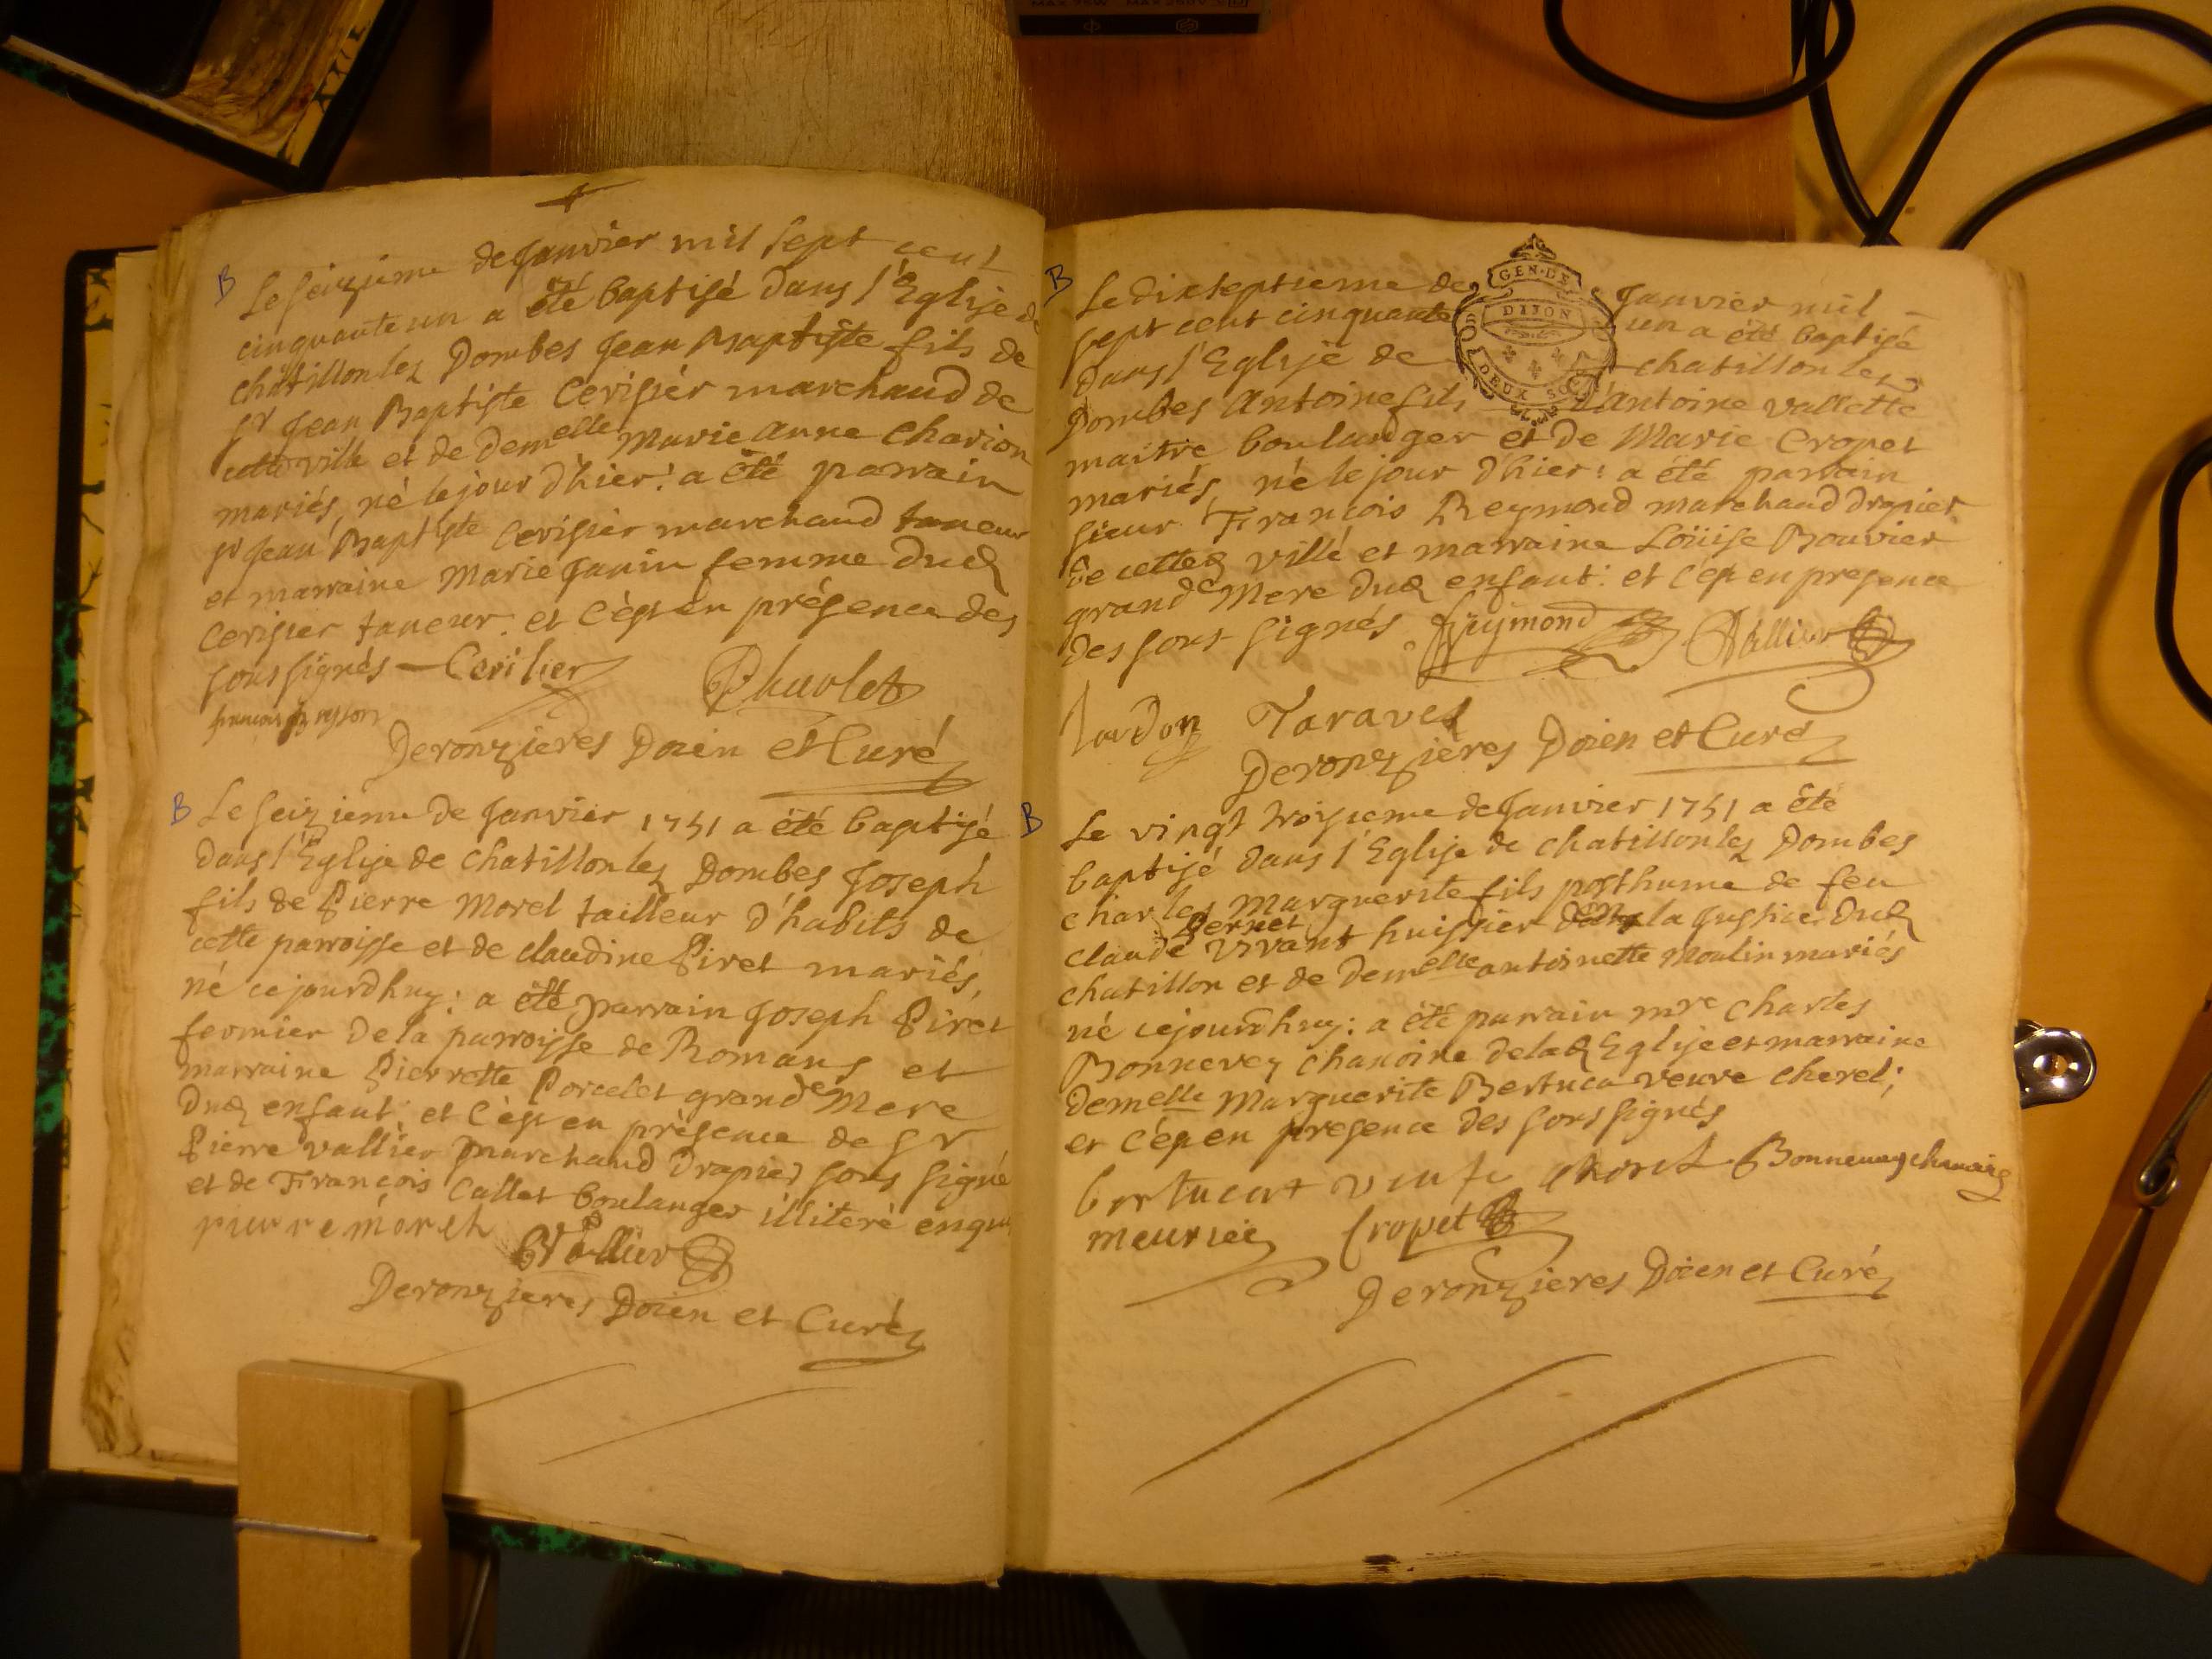 B
Le seizieme de Janvier mil sept cent
cinquante un a été baptisé dans l'Eglise de
châtillon lez Dombes Jean Baptiste fils de
sr Jean Baptiste Cerisier marchand de
cette ville et de Demelle Marie Anne Charion
mariés, né le jour d'hier: a été parrain
sr Jean Baptiste Cerisier marchand taneur
et marraine Marie Janin femme dud
Cerisier taneur. et c'est en présence des
soussignés — Cerisier Phuolet
Deronzieres Doien et Curé
B
Le seizieme de Janvier 1751 a été baptisé
dans l'Eglise de chatillon lez Dombes Joseph
fils de Pierre Morel tailleur d'habits de
cette parroisse et de claudine Piret mariés,
né cejourdhuy: a été parrain Joseph Piret
fermier de la parroisse de Romans et
marraine Pierrette Porcelet grande Mere
dud enfant; et c'est en présence de sr
Pierre vallier marchand drapier sous signé
et de François Callet boulanger illiteré enquis
pierre morel Vallier
Deronzieres Doien et Curé
B
GEN. DE
DIJON
DEUX SOLS
Le dixseptieme de Janvier mil
sept cent cinquante un a été baptisé
dans l'Eglise de chatillon lez
Dombes Antoine fils d'Antoine vallette
maitre boulanger et de Marie Cropet
mariés, né le jour d'hier: a été parrain
sieur François Reymond marchand drapier
de cetted ville et marraine Loüise Bouvier
grande Mere dud enfant: et c'est en presence
des sous signés Reymond Vallier
Taravel
Deronzières Doien et Curé
B
Le vingt troisieme de Janvier 1751 a été
baptisé dans l'Eglise de chatillon lez Dombes
charles Marguerite fils posthume de feu
Claude Pernet vivant huissier dans la Justice dud
chatillon et de Demelle antoinette Moulin mariés
né cejourdhuy: a été parrain mre Charles
Bonnevey chanoine de lad Eglise et marraine
demelle Marguerite Bertuca veuve cherel;
et c'est en presence des sous signés
bertucat veufe Bonnevay chanoine
meurier Cropet
Deronzieres Doien et Curé